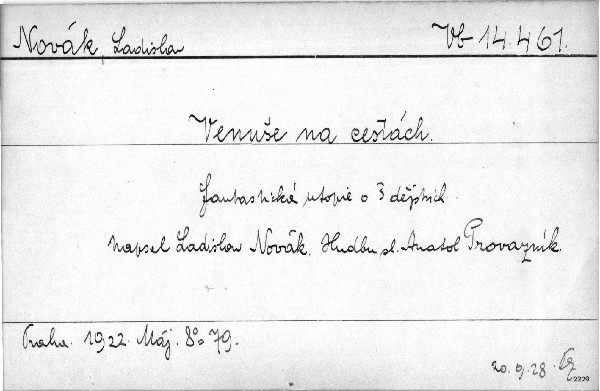 Novák, Ladislav Vb 14.461.
Venuše na cestách.
Fantastická utopie o 3 dějstvích
napsal Ladislav Novák. Hudbu sl. Anatol Provazník.
Praha. 1922. Máj. 8° 79.
20.9.28.
2229